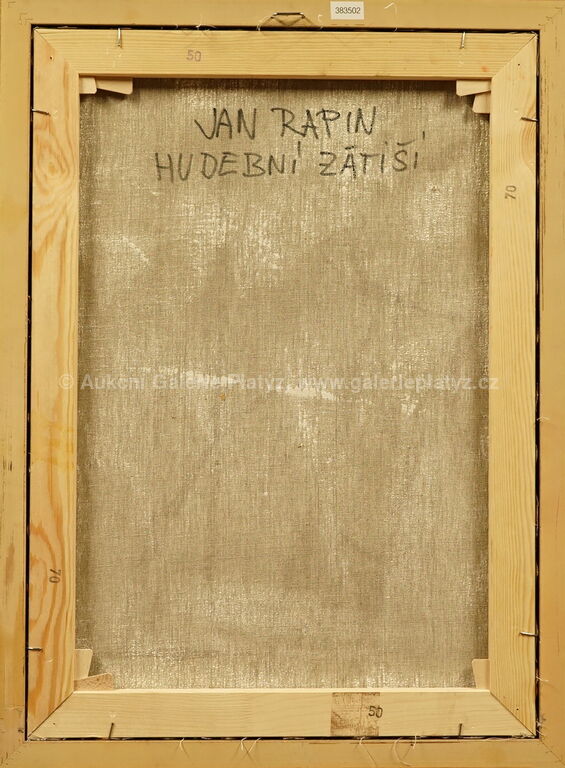 383502
50
JAN RAPIN
HUDEBNÍ ZÁTIŠÍ
70
© Aukční Galerie Platýz, www.galerieplatyz.cz
70
50